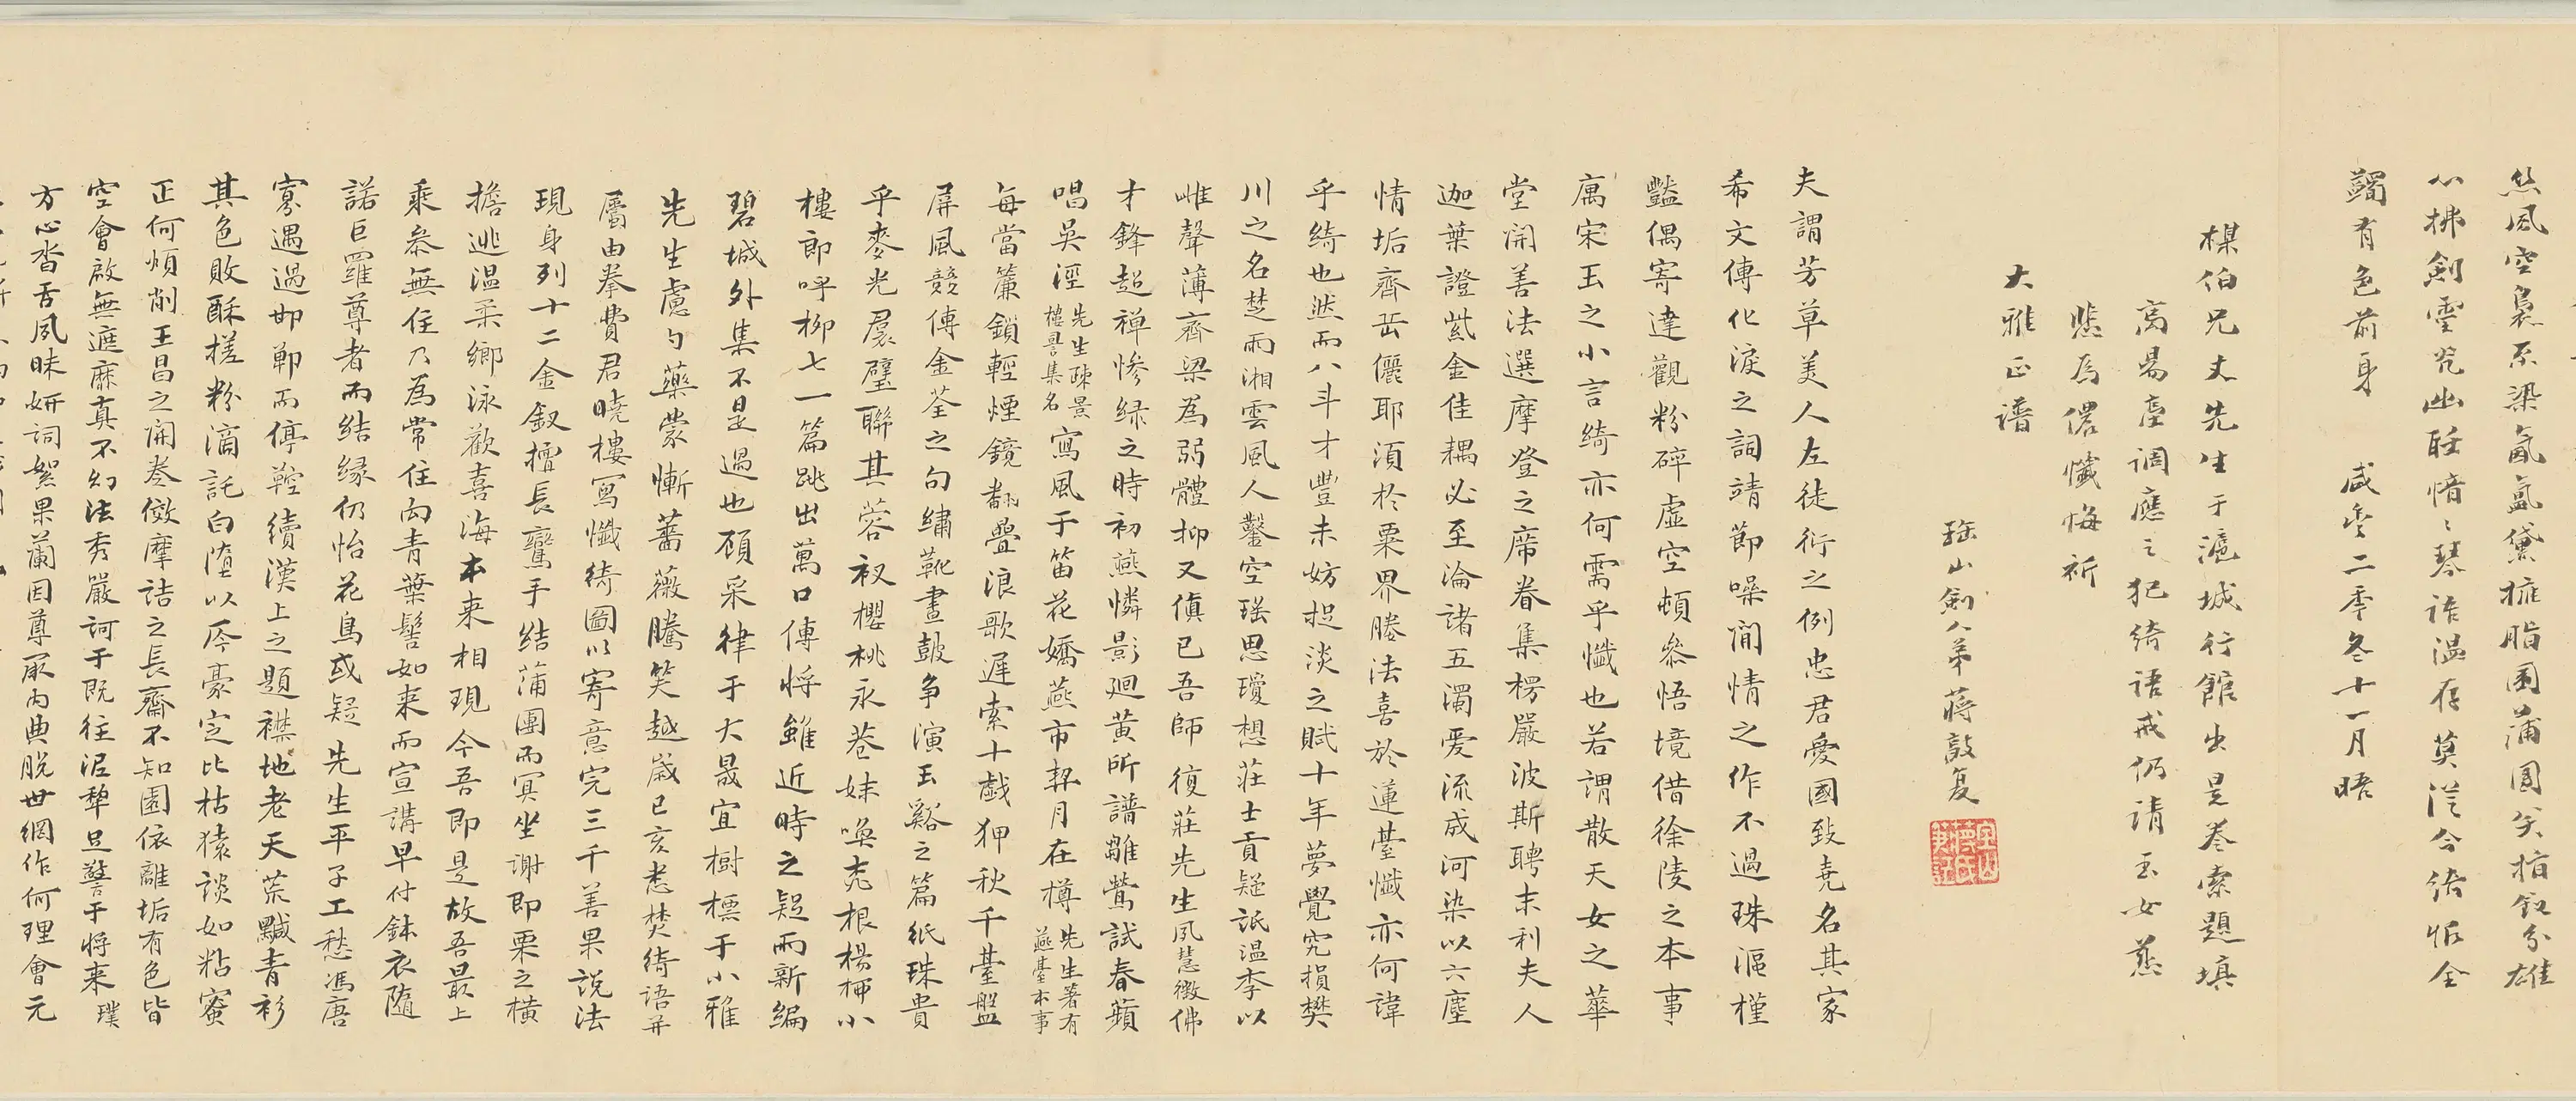 然風空裊系梁氤氳黛擁脂圍蒲團矣指釵分雄
心拂劍靈咒幽眠愔〻琴語溫存莫從今綺恨全
蠲有色前身 咸豐二年冬十一月晤
楳伯兄丈先生于滬城行館出是卷索題填
高昜臺調應之犯綺語戒仍請玉女蒸
悲為儂懺悔祈
大雅正譜
瑤山劍人弟蔣敦复
夫謂芳草美人左徒衍之例忠君愛國致堯名其家
希文傳化淚之詞靖節噪閒情之作不過珠漚槿
豔偶寄達觀粉碎虛空頓參悟境借徐陵之本事
寓宋玉之小言綺亦何需乎懺也若謂散天女之華
堂開善法選摩登之席眷集楞嚴波斯聘末利夫人
迦葉證紫金佳耦必至淪諸五濁愛流成河染以六塵
情垢齊岳儷耶須於粟界勝法喜於蓮臺懺亦何諱
乎綺也然而八斗才豐未妨捉淡之賦十年夢覺究損樊
川之名楚雨湘雲風人鑿空瑤思瓊想莊士貢疑詆溫李以
雌聲薄齊梁為弱體抑又傎已吾師復莊先生夙慧徵佛
才鋒超禪慘綠之時初燕憐影廻黃所譜雛鶯試春蘋
唱吳淫先生疎景樓晷集名寫風于笛花嬌燕市栔月在樽先生著有燕臺本事
每當簾鎖輕煙鏡翻疊浪歌遲索十戲狎秋千臺盤
屏風競傳金荃之句繡靴畫鼓争演玉谿之篇紙珠貴
乎麥光裠璧聯其蓉衩櫻桃永巷妹喚桃根楊柳小
樓郎呼柳七一篇跳出萬口傳將雖近時之疑雨新編
碧城外集不是過也顧采律于大晟宜樹標于小雅
先生慮勺藥蒙慚薔薇騰笑越歲已亥悉焚綺語并
屬由拳費君曉樓寫懺綺圖以寄意完三千善果說法
現身列十二金釵擅長鸞手結蒲團而冥坐謝即栗之橫
擔逃溫柔鄉泳歡喜海本来相現今吾即是故吾最上
乘參無住乃為常住向青葉髻如来而宣講早付鉢衣隨
諾巨羅尊者而結緣仍怡花鳥或疑先生平子工愁馮唐
寡遇過邯鄲而停鞚續漢上之題襟地老天荒黬青衫
其色敗酥搓粉滴託白墮以孱豪定比枯猿談如粘蜜
正何煩削王昌之閑卷傚摩詰之長齋不知園依離垢有色皆
空會啟無遮麻真不幻法秀嚴訶于既往泥犂旦謷于將来璞
方心沓舌夙昧妍詞絮果蘭因尊厥內典脫世網作何理會元